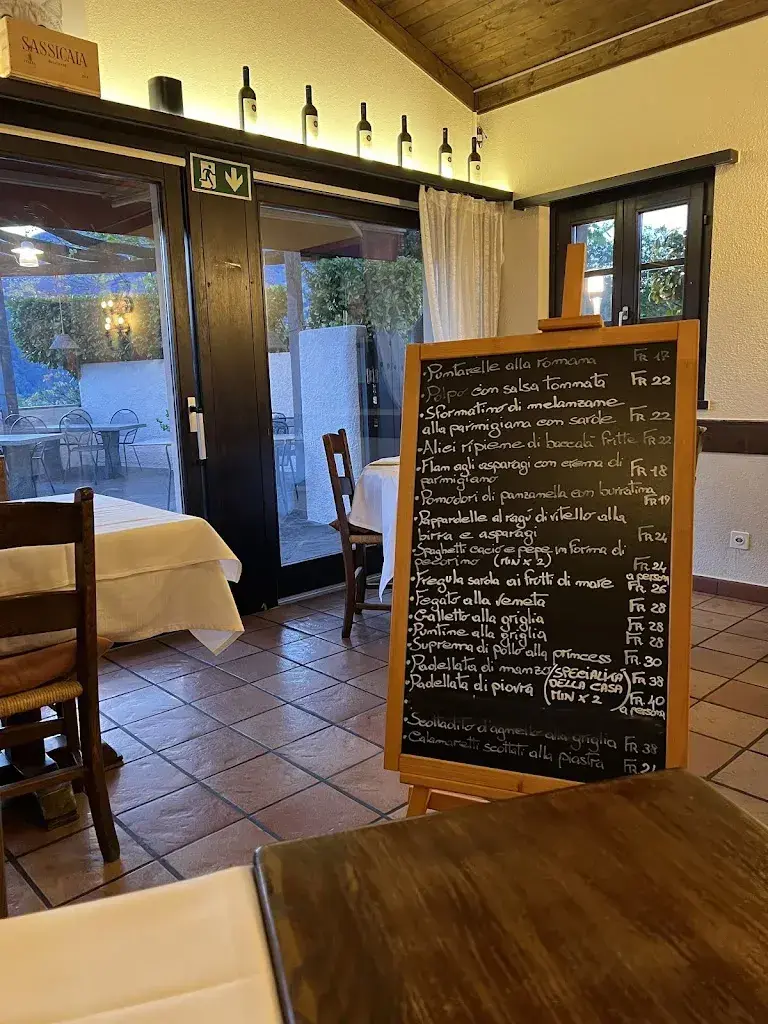 SASSICAIA
• Puntarelle alla romana FR 17
• Polpo con salsa tonnata FR 22
• Sformatino di melanzane
alla parmigiana con sarde FR 22
• Alici ripiene di baccalà fritte FR 22
• Flam agli asparagi con crema di FR 18
parmigiano
• Pomodori di panzanella con burratina FR 19
• Pappardelle al ragù di vitello alla
birra e asparagi FR 24
• Spaghetti cacio e pepe in forma di
pecorino (MIN X 2) FR 24
a persona
• Fregula sarda ai frutti di mare FR 26
• Fegato alla veneta FR 28
• Galletto alla griglia FR 28
• Puntine alla griglia FR 28
• Suprema di pollo alla princess FR 30
• Padellata di manzo FR 38
• Padellata di piovra (SPECIALITÀ DELLA CASA MIN X 2) FR 40
a persona
• Scottadito d'agnello alla griglia FR 38
• Calamaretti scottati alla piastra FR